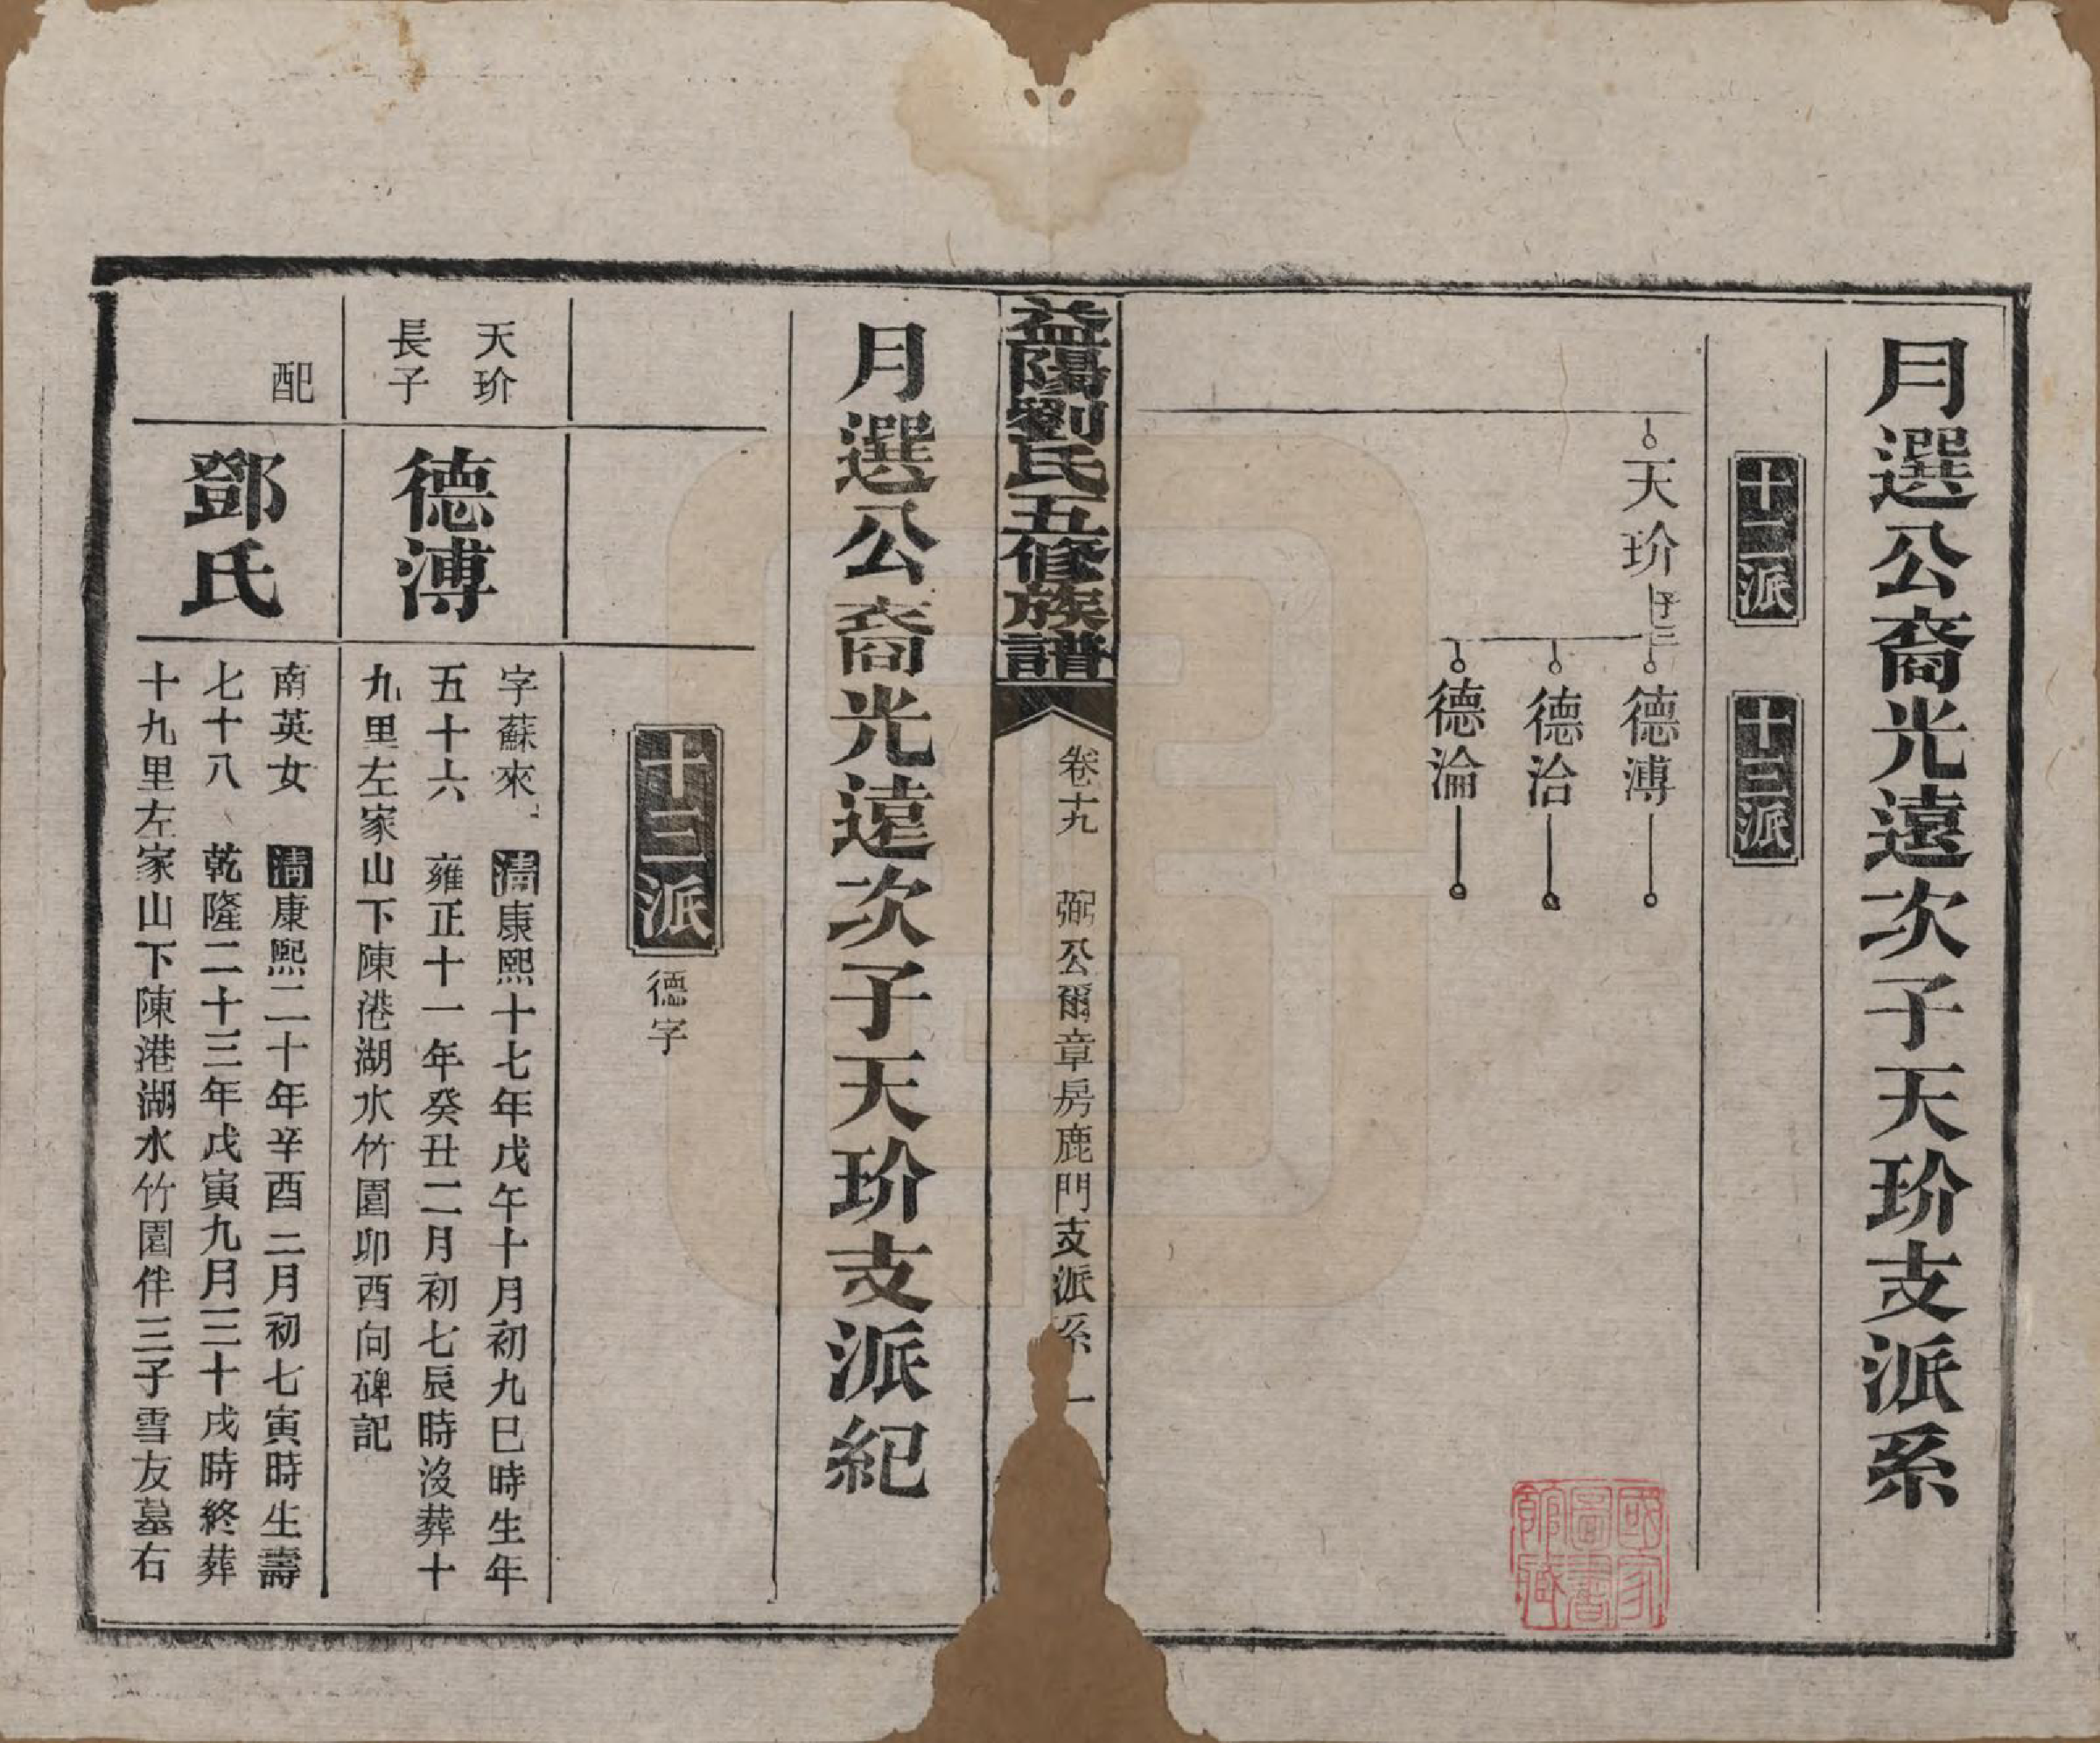 月選公裔光遠次子天玠支派系
十二派
十三派
天玠
子三
德溥
德治
德淪
益陽劉氏五修族譜
卷十九
弼公爾章房鹿門支派系
一
月選公裔光遠次子天玠支派紀
十三派
德字
天玠
長子
德溥
字蘇來
清康熙十七年戊午十月初九巳時生年
五十六 雍正十一年癸丑二月初七辰時沒葬十
九里左家山下陳港湖水竹園卯酉向碑記
配
鄧氏
南英女 清康熙二十年辛酉二月初七寅時生壽
七十八 乾隆二十三年戊寅九月三十戌時終葬
十九里左家山下陳港湖水竹園伴三子雪友墓右
國家
圖書
館藏